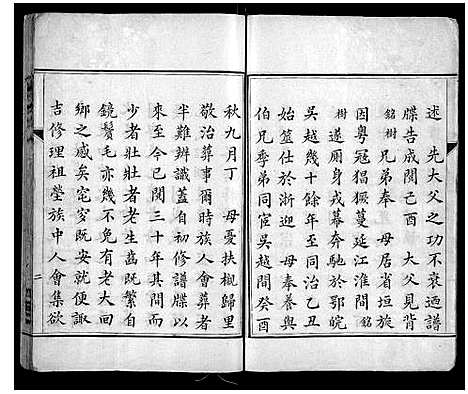 述　先大父之功不衰迺譜
牒告成閱己酉　大父見背
銘樹兄弟奉　母居省垣旋
因粵寇猖獗蔓延江淮間銘
樹遂廁身戎幕奔馳於鄂皖
吳越幾十餘年至同治乙丑
始簉仕於浙迎　母奉養與
伯兄季弟同宦吳越間癸酉
秋九月丁　母憂扶櫬歸里
敬治葬事爾時族人會葬者
半難辨識蓋自初修譜牒以
來至今已閱三十年其間而
少者壯壯者老生齒既繁自
鏡鬢毛亦幾不免有老大回
鄉之感矣窀穸既安就便諏
吉修理祖塋族中人會集欲
二